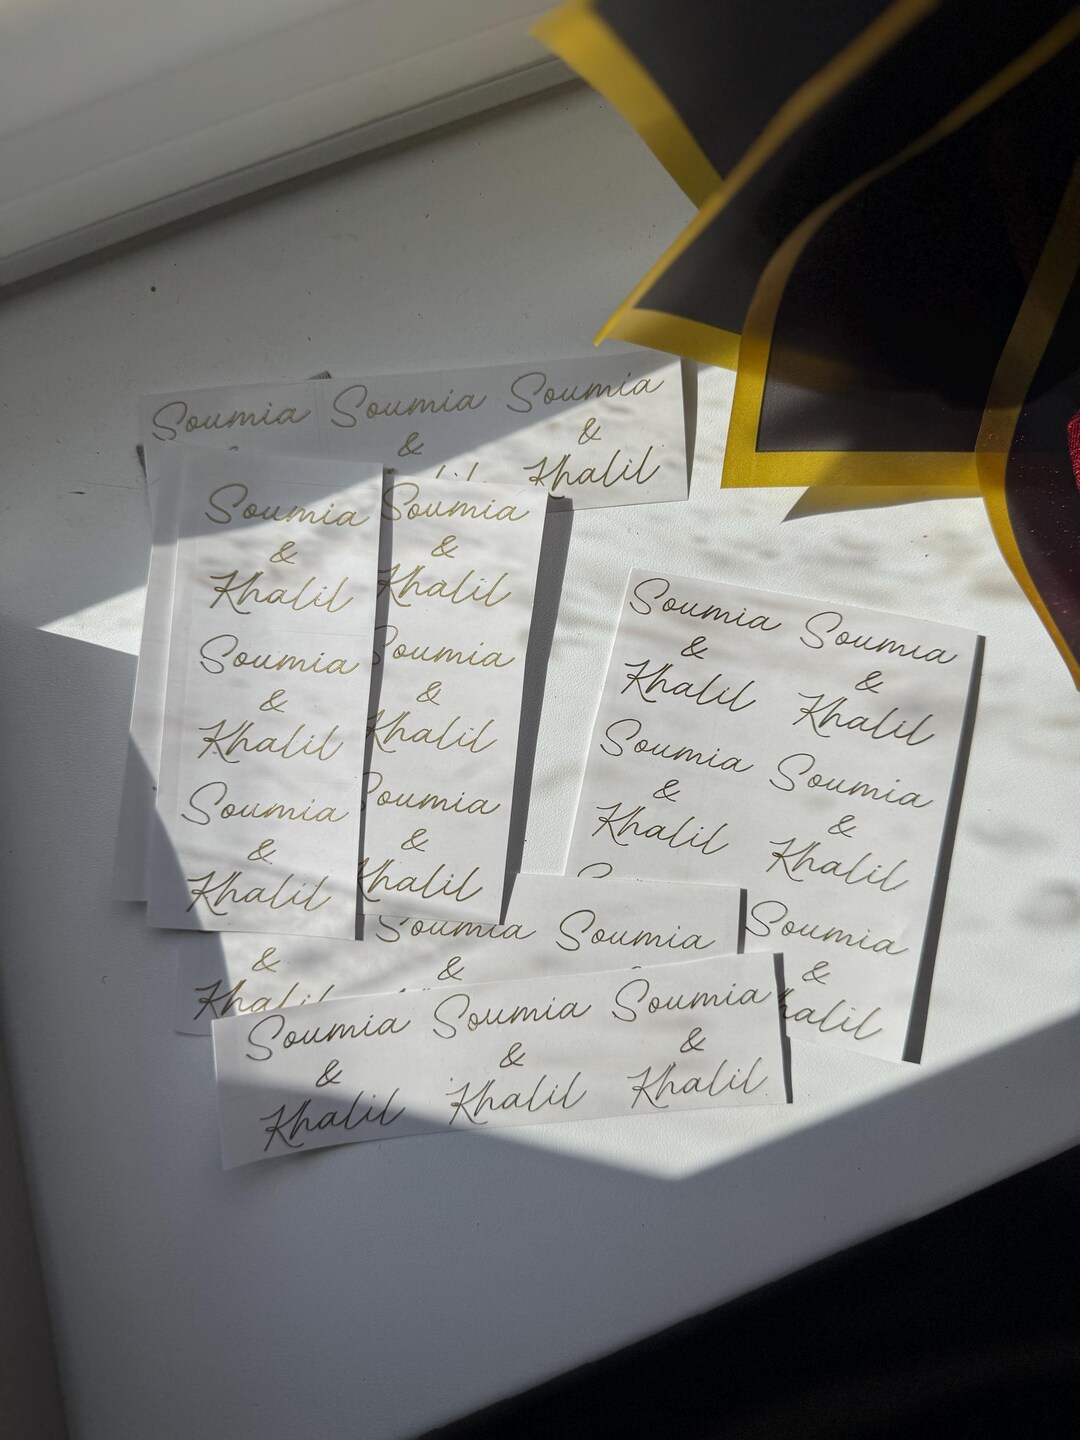 Soumia Soumia Soumia
& &
Khalil
Soumia
&
Khalil
Soumia
&
Khalil
Soumia
&
Khalil
Soumia
&
Khalil
Soumia
&
Khalil
Soumia
&
Khalil
Soumia Soumia
& &
Khalil Khalil
Soumia Soumia
& &
Khalil Khalil
Soumia
&
Khalil
Soumia Soumia
&
&
Khalil
Soumia Soumia Soumia
& & &
Khalil Khalil Khalil